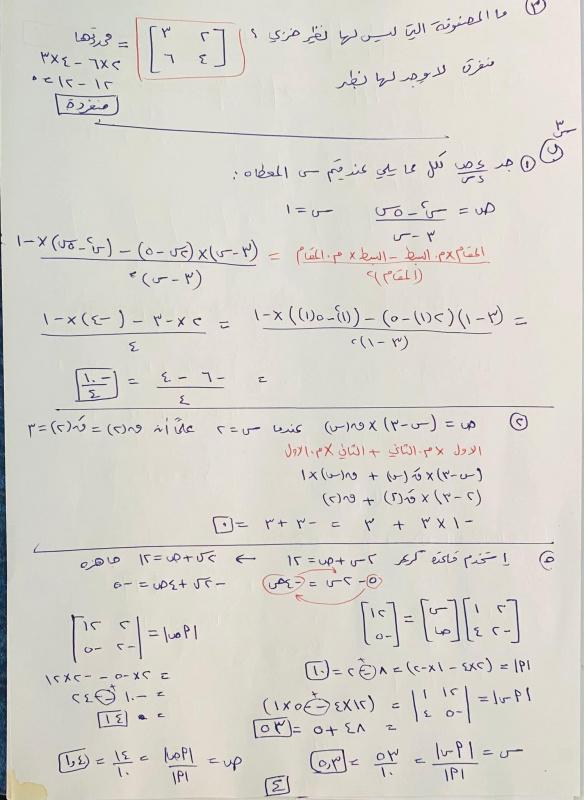 ٣) ما المصفوفة التي ليس لها نظير ضربي ؟ [٣ ٢ ; ٦ ٤] = محددتها
٢×٦ - ٤×٣
١٢ - ١٢ = ٠
منفردة
منفردة لا يوجد لها نظير
س٣
١) جد دص/دس لكل مما يلي عند قيم س المعطاه :
ص = (س٢ - ٥س)/(٣ - س) س = ١
(المقام × م. البسط - البسط × م. المقام)/(المقام)٢ = ((٣-س)×(٢س-٥) - (س٢-٥س)×-١)/(٣-س)٢
= ((٣-١)(٢(١)-٥) - ((١)٢-٥(١))×-١)/(٣-١)٢ = (٢×-٣ - (-٤)×-١)/٤
= (-٦ - ٤)/٤ = -١٠/٤
٢) ص = (س-٣)×ق(س) عندما س=٢ علماً أنه ق(٢)=قَ(٢)=٣
الاول × م. الثاني + الثاني × م. الاول
(س-٣)×قَ(س) + ق(س)×١
(٢-٣)×قَ(٢) + ق(٢)
-١×٣ + ٣ = -٣+٣ = ٠
٥) استخدم قاعدة كريمر ٢س+ص=١٢ ← ٢س+ص=١٢
٥-٢س=-٤ص -٢س+٤ص=-٥
[٢ ١ ; -٢ ٤] [س ; ص] = [١٢ ; -٥] |أص| = |٢ ١٢ ; -٢ -٥|
|أ| = (٢×٤ - ١×-٢) = ٨ + ٢ = ١٠
= ٢×-٥ - -٢×١٢
|أس| = |١٢ ١ ; -٥ ٤| = (١٢×٤ - -٥×١)
= -١٠ + ٢٤
= ٤٨ + ٥ = ٥٣
= ١٤
س = |أس|/|أ| = ٥٣/١٠ = ٥,٣ ص = |أص|/|أ| = ١٤/١٠ = ١,٤
٤